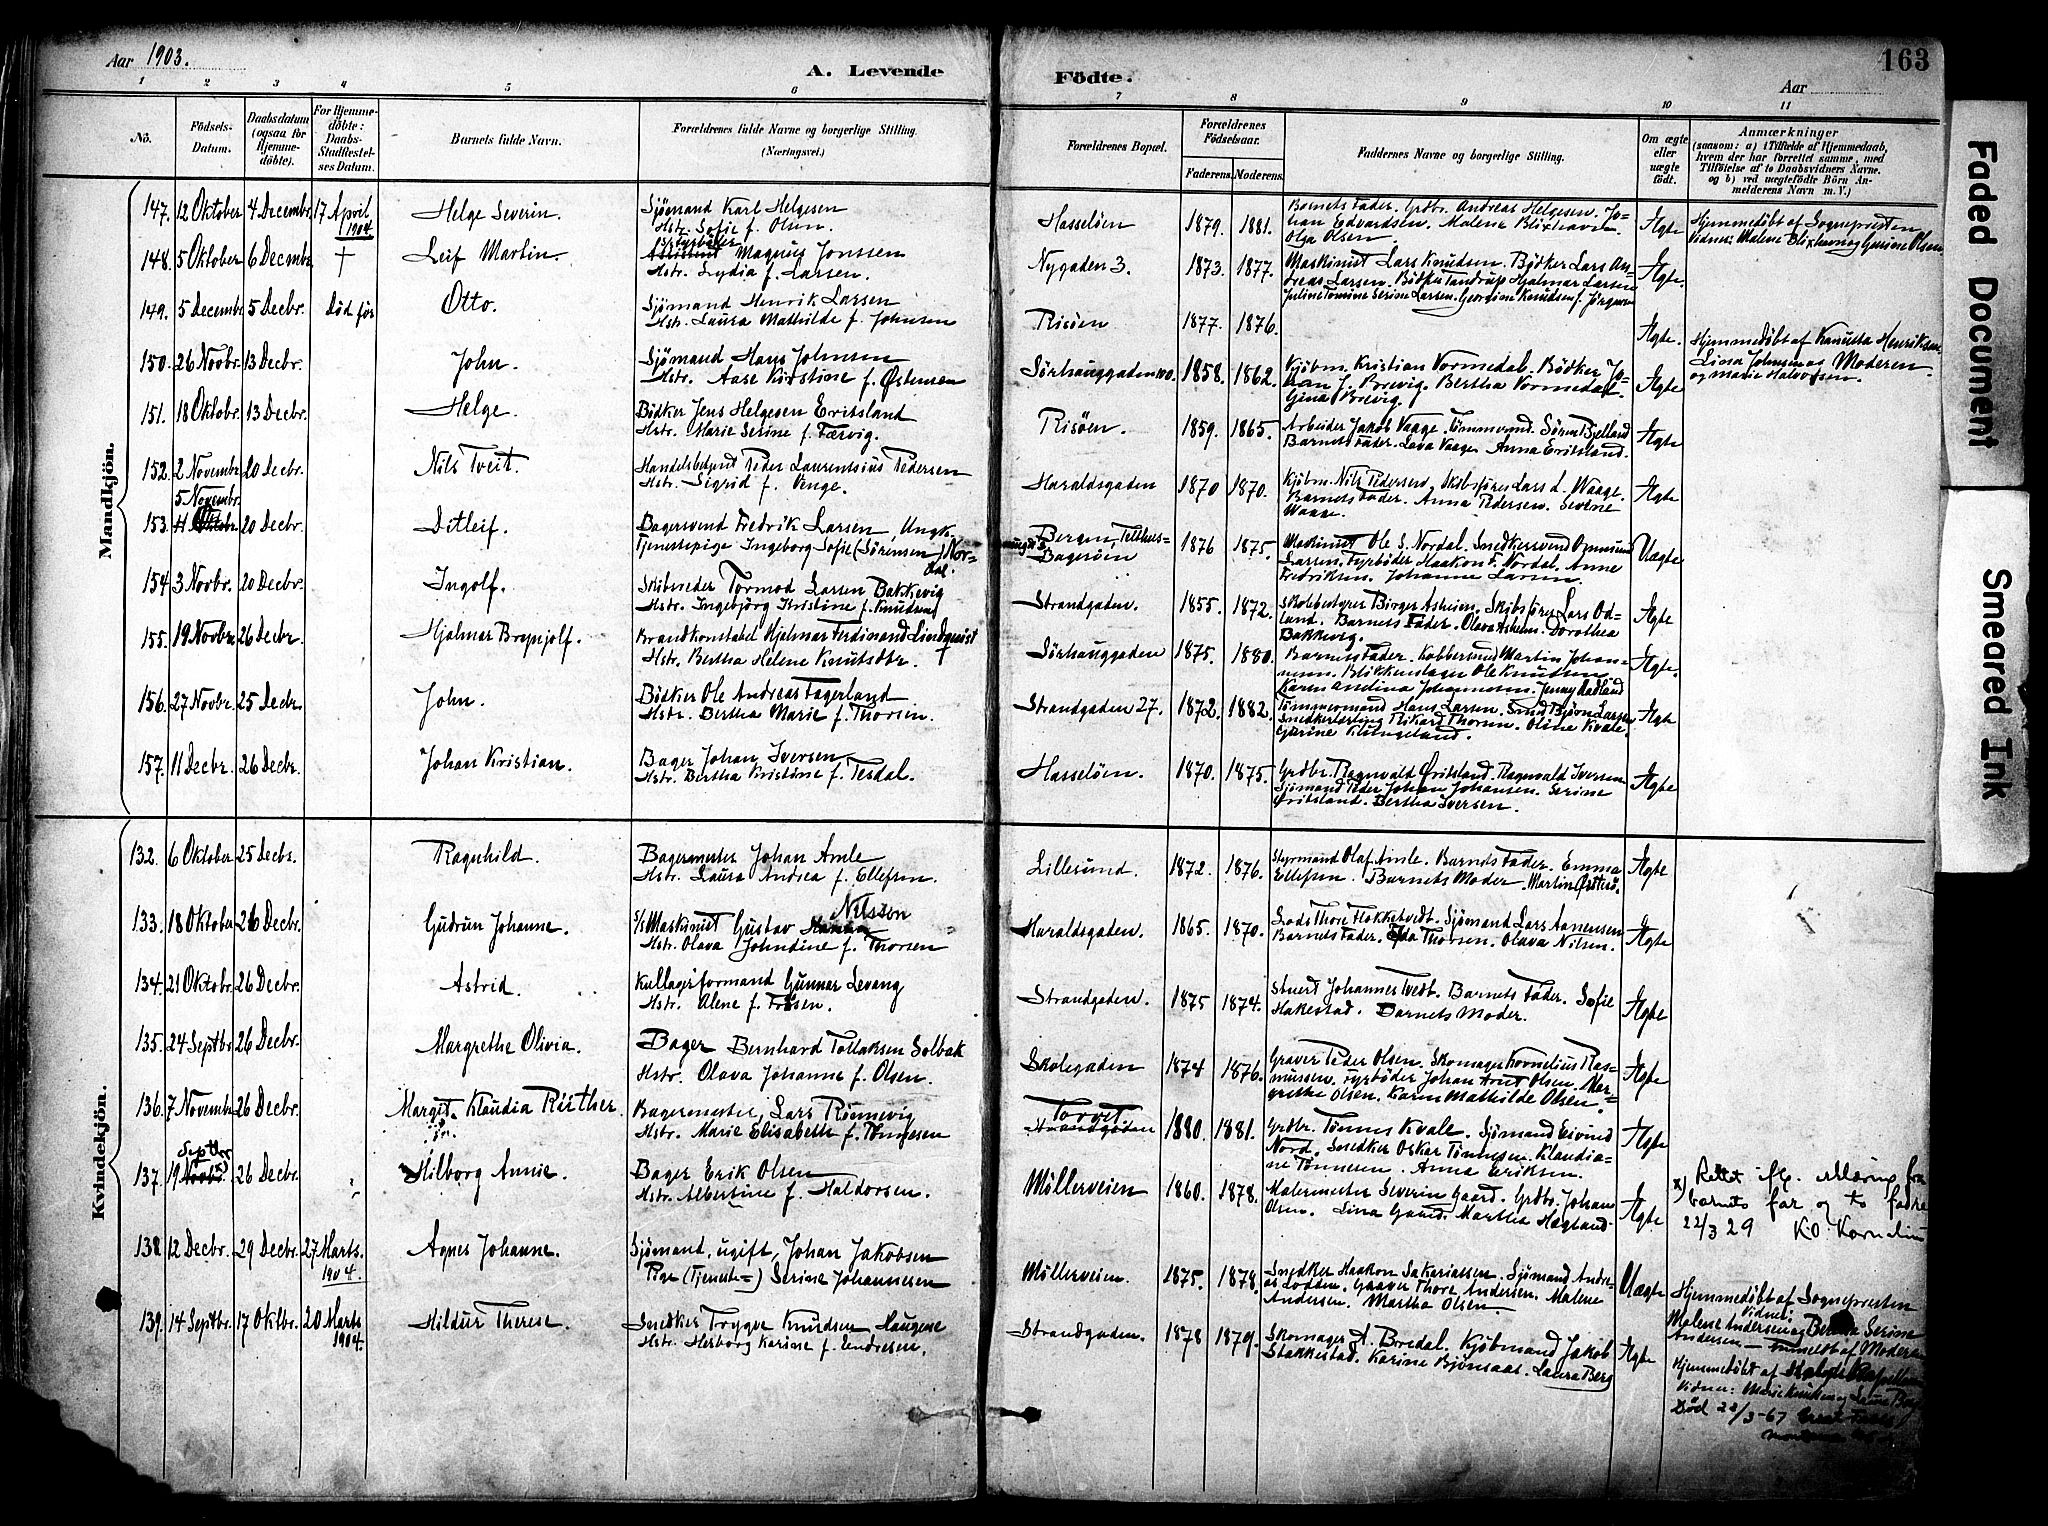 Aar 1903.
A. Levende Födte.
Aar
163
1 2 3 4 5 6 7 8 9 10 11
No.
Födsels-Datum.
Daabsdatum (ogsaa for Hjemmedöbte).
For Hjemmedöbte: Daabs-Stadfæstelses Datum.
Barnets fulde Navn.
Forældrenes fulde Navne og borgerlige Stilling. (Næringsvei.)
Forældrenes Bopæl.
Forældrenes Födselsaar.
Faderens.
Moderens.
Faddernes Navne og borgerlige Stilling.
Om ægte eller uægte födt.
Anmærkninger (saasom: a) i Tilfælde af Hjemmedaab, hvem der har forrettet samme, med Tilföielse af to Daabsvidners Navne. og b) ved uægtefödte Börn Anmelderens Navn m. V.)
Mandkjön.
147. 12 Oktober 4 Decembr. 17 April 1904 Helge Severin. Sjömand Karl Helgesen
Hstr. Sofie f. Olsen. Hasselöen 1879. 1881. Barnets Fader. Grdbr. Andreas Helgesen. Johan Edvardsen. Malene Blixhavn. Olga Olsen Ægte Hjemmedöbt af Sognepresten
Vidner: Malene Blixhavn og Gurine Olsen
148. 5 Oktober 6 Decembr. † Leif Martin. Fyrböter Magnus Jonssen
Hstr. Lydia f. Larsen. Nygaden 3. 1873. 1877. Maskinist Lars Knudsen. Bödker Lars Andreas Larsen. Bödker Tandrup Hjalmar Larsen
Juline Tomine Serine Larsen. Georgine Knudsen f. Jörgensen Ægte.
149. 5 December 5 Decbr. Död för Otto. Sjömand Henrik Larsen
Hstr. Laura Mathilde f. Johnsen Risöen 1877. 1876. Ægte. Hjemmedöbt af Kanutta Henriksen
Lina Johnsen og Moderen
og Marie Halvorsen.
150. 26 Novbr. 13 Decbr. John. Sjömand Hans Johnsen
Hstr. Aase Kirstine f. Østensen Sörhauggaden 100. 1858. 1862. Kjöbm. Kristian Vormedal. Bödker Johan J. Brevig. Bertha Vormedal.
Gina Brevig. Ægte
151. 18 Oktobr. 13 Decbr. Helge. Bödker Jens Helgesen Eritsland
Hstr. Marie Serine f. Færvig. Risöen. 1859. 1865. Arbeider Jakob Vaage. Tömmermd. Sören Bjelland
Barnets Fader. Lava Vaage. Anna Eritsland. Ægte
152. 2 Novembr. 20 Decbr. Nils Tveit. Handelsbetjent Peder Laurentsius Pedersen
Hstr. Sigrid f. Venge. Haraldsgaden 1870 1870. Kjöbm. Nils Pedersen. Skibsförer Lars L. Waage.
Barnets Fader. Anna Pedersen. Severine
Waage Ægte
5 Novembr.
153. 20 Decbr. Ditleif. Bagersvend Fredrik Larsen, Ungk.
Tjenestepige Ingeborg Sofie (Sörensen) Nordal. Bergen
Bagesöen 1876 1875. Maskinist Ole S. Nordal. Snedkersvend Ommund
Larsen. Fyrböder Haakon F. Nordal. Anne
Fredriksen. Johanne Larsen. Uægte
154. 3 Novbr. 20 Decbr. Ingolf. Skibsreder Tormod Larsen Bakkevig
Hstr. Ingebjörg Kristine f. Knudsen Strandgaden. 1855. 1872. Skolebestyrer Birger Asheim. Skibsförer Lars Odland. Barnets Fader. Olava Asheim. Dorothea
Bakkevig. Ægte
155. 19 Novbr. 26 Decbr. Hjalmar Brynjolf. Brandkonstabel Hjalmar Ferdinand Lindquist
Hstr. Bertha Helene Knutsdtr. Sörhauggaden 1875. 1880. Barnets Fader. Kobbersmed Martin Johannesen. Blikkenslager Ole Knudsen
Karen Andina Johannesen. Jenny Aadland Ægte.
156. 27 Novbr. 25 Decbr. John. Bödker Ole Andreas Fagerland
Hstr. Bertha Marie f. Thorsen. Strandgaden 27. 1872. 1882. Tömmermand Hans Larsen. Smed Björn Larsen
Snedkerlærling Rikard Thorsen. Oline Kvale.
Gurine Klungeland. Ægte
157. 11 Decbr. 26 Decbr. Johan Kristian. Bager Johan Iversen
Hstr. Bertha Kristine f. Tesdal. Hasselöen. 1870. 1875. Grdbr. Ragnvald Øritsland. Ragnvald Iversen
Sjömand Peder Johan Johansen. Serine
Øritsland. Bertha Iversen. Ægte
Kvindekjön.
132. 6 Oktober 25 Decbr. Ragnhild. Bagermester Johan Amle
Hstr. Laura Andrea f. Ellefsen. Lillesund. 1872. 1876. Styrmand Olaf Amle. Barnets Fader. Emma
Ellefsen. Barnets Moder. Martin Østtesö. Ægte
133. 18 Oktober 26 Decbr. Gudrun Johanne. S/S Maskinist Gustav Nilssen
Hstr. Olava Johndine f. Thorsen Haraldsgaden. 1865. 1870. Lods Thore Flokketvedt. Sjömand Lars Aanensen
Barnets Fader. Thorsen. Olava Nilsen. Ægte
134. 21 Oktobr. 26 Decbr. Astrid. Kullagerformand Gunnar Levang
Hstr. Alene f. Friesen. Strandgaden. 1875 1874. Stuert Johannes Tvedt. Barnets Fader. Sofie
Hakestad. Barnets Moder. Ægte
135. 24 Septbr. 26 Decbr. Margrethe Olivia. Bager Bernhard Tollaksen Solbak
Hstr. Olava Johanne f. Olsen. Skolegaden 1874 1876. Graver Peder Olsen. Skomager Kornelius Rasmussen. Fyrböder Johan Arnt Olsen. Margrethe Olsen. Karen Mathilde Olsen. Ægte
136. 7 Novembr. 26 Decbr. Margit Klaudia Ruther. Bagermester Lars Rönnevig
Hstr. Marie Elisabeth f. Tönnesen Torvet
Strandgaden 1880. 1881. Grdbr. Tönnes Kvale. Sjömand Eivind
Nord. Snedker Oskar Tönnesen. Klaudiane Tönnesen. Anna Eriksen. Ægte
Septbr
137. 19 26 Decbr. Hilborg Annie. Bager Erik Olsen
Hstr. Albertine f. Haldorsen. Möllerveien 1860. 1878. Malermester Severin Gaard. Grdbr. Johan
Olsen. Lina Gaard. Martha Hagland. Ægte x) Rettet ifg. erklæring fra
barnets far og to faddre
22/3 29 K.O. Kornelius
138. 12 Decbr. 29 Decbr. 27 Marts. 1904. Agnes Johanne. Sjömand, ugift, Johan Jakobsen
Pige (Tjeneste=) Serine Johannesen Möllerveien. 1875. 1878. Snedker Haakon Sakariassen. Sjömand Andreas Lodden. Graver Thore Andersen. Malene
Andersen. Martha Olsen. Uægte Hjemmedöbt af Sognepresten
Vidner:
Malene Andersen og Serine
Andersen — Anmeldt af Moderen
139. 14 Septbr. 17 Oktbr. 20 Marts 1904. Hildur Therese. Snedker Trygve Knudsen Haugene
Hstr. Herborg Karine f. Endresen. Strandgaden. 1878 1879. Skomager A. Bredal. Kjöbmand Jakob
Stakkestad. Karine Björnsaas. Laura Berg Ægte Hjemmedöbt af
Vidner: Marie Knudsen og
Död 22/3-67
Faded Document
Smeared Ink